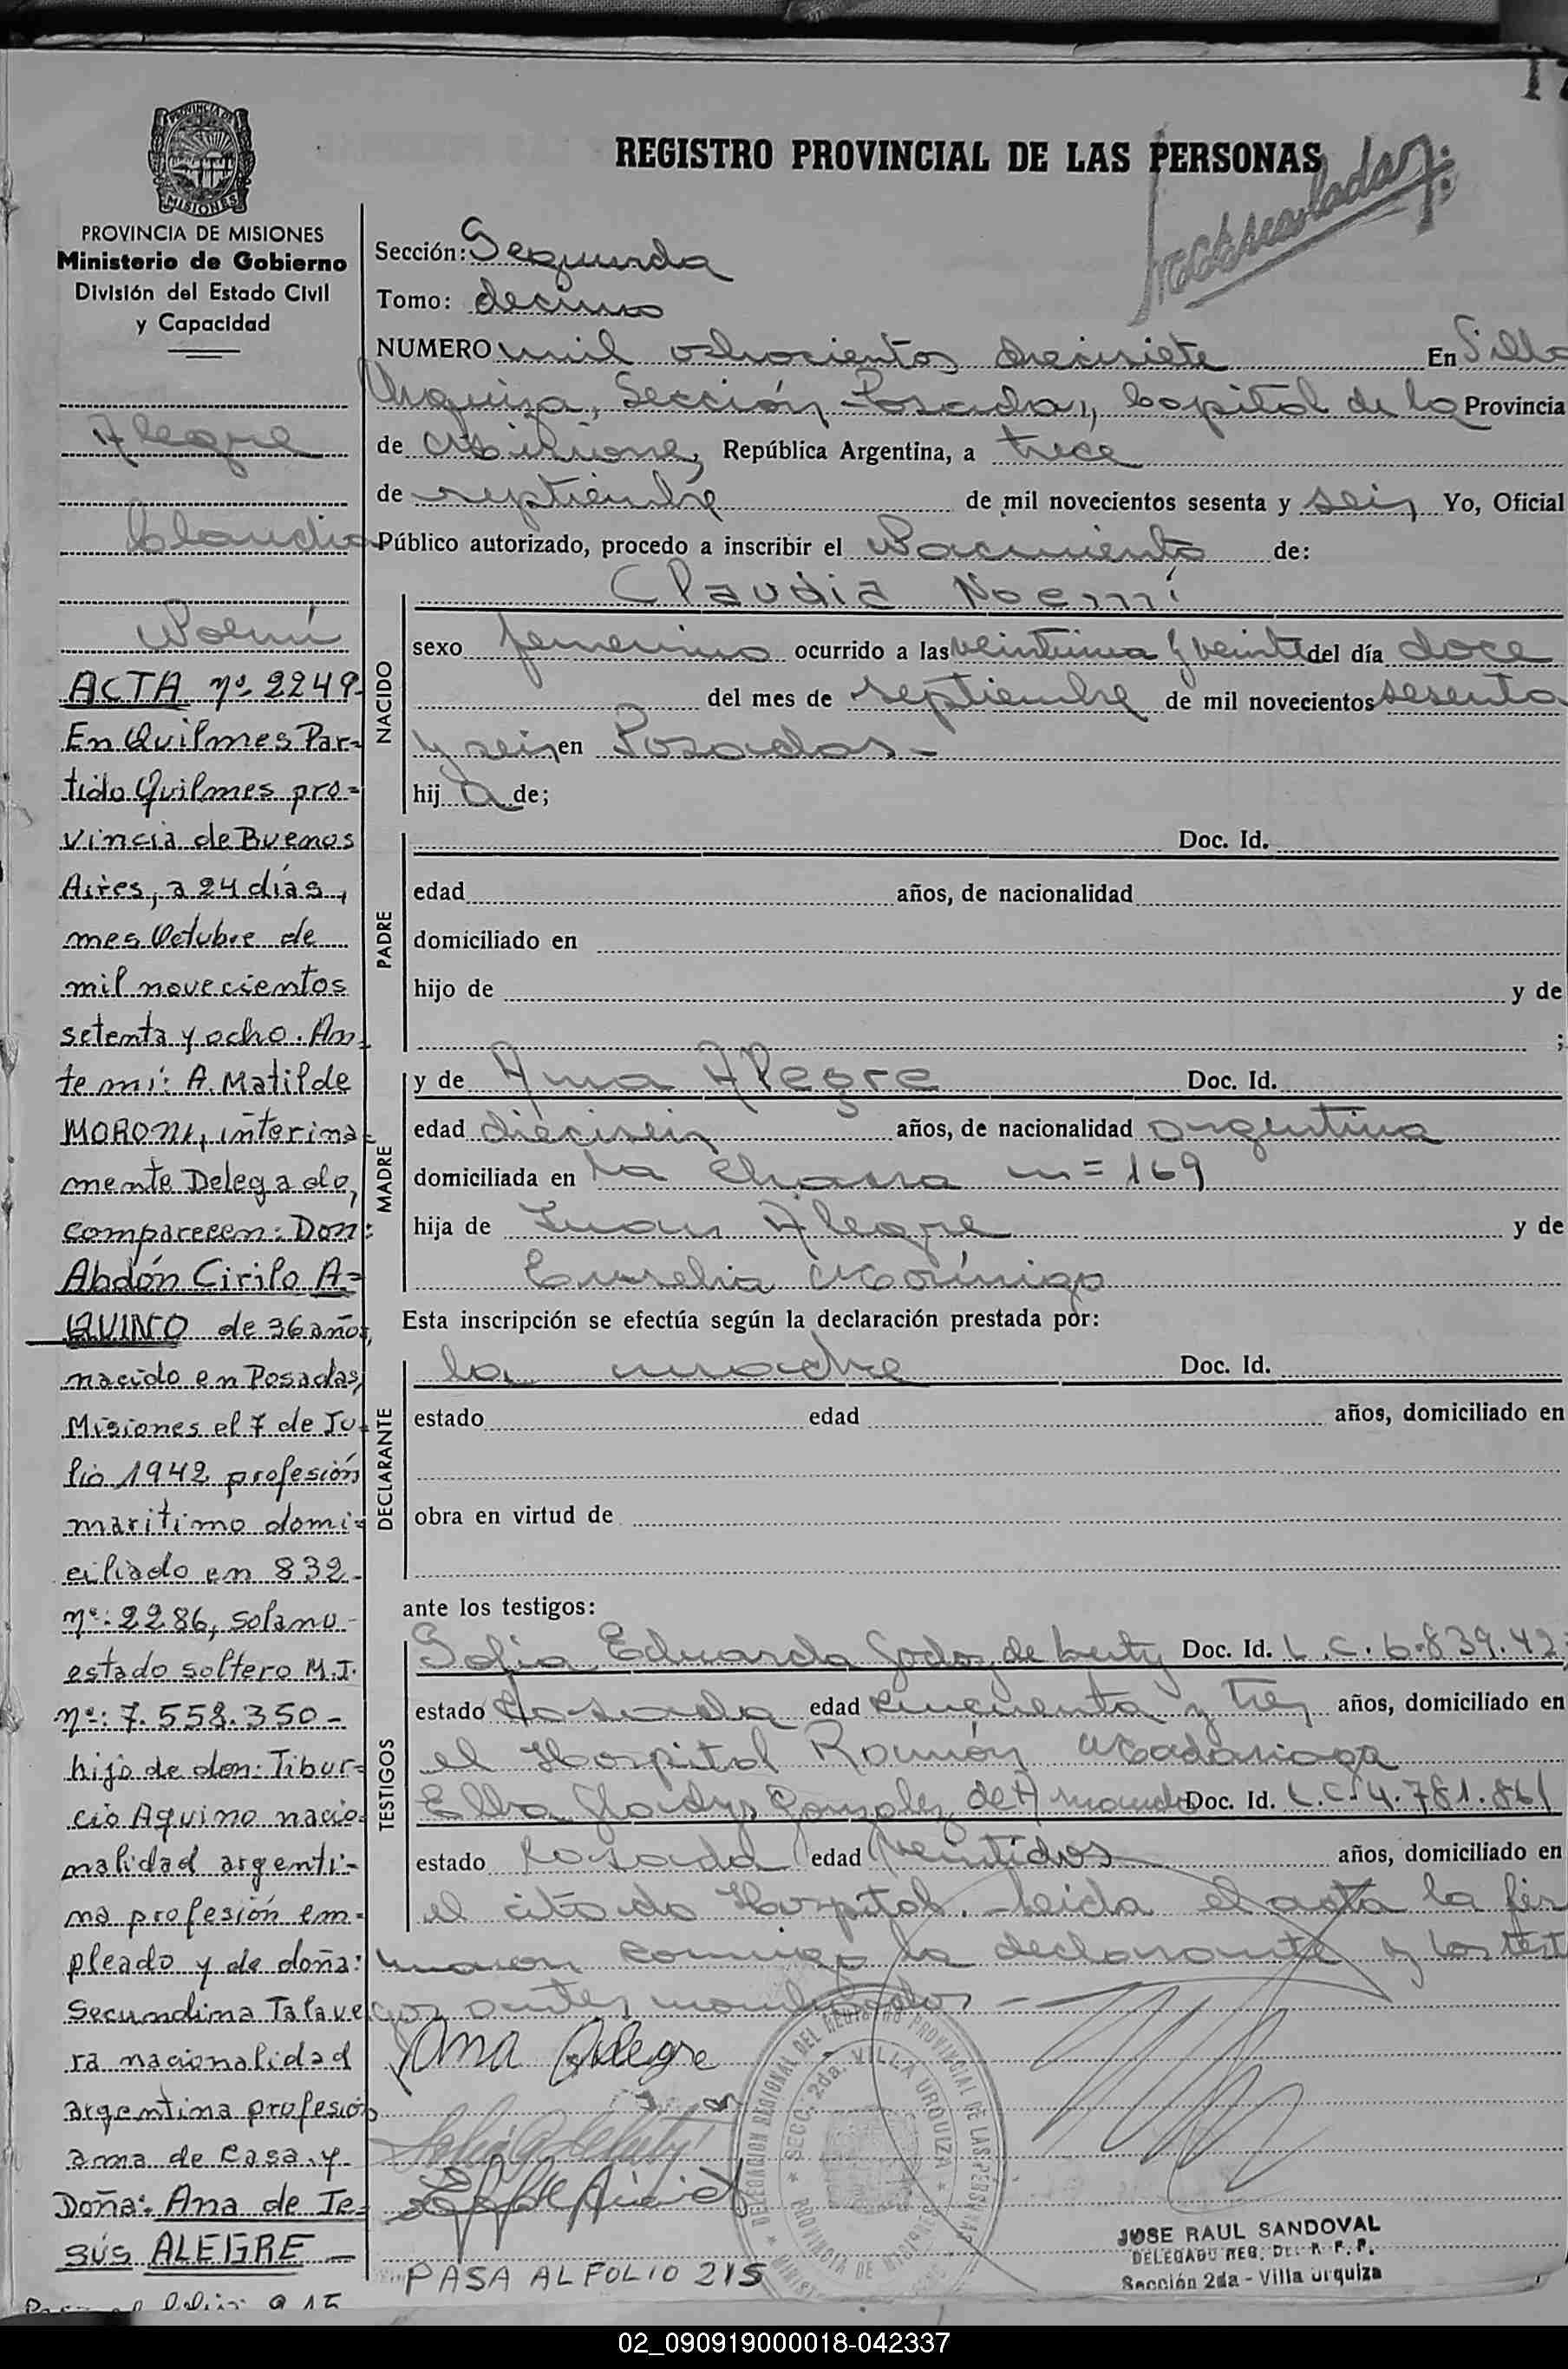 17
REGISTRO PROVINCIAL DE LAS PERSONAS
PROVINCIA DE MISIONES
MISIONES
PROVINCIA DE MISIONES
Ministerio de Gobierno
División del Estado Civil
y Capacidad
Alegre
Claudia
Noemí
ACTA nº 2249-
En Quilmes Par-
tido Quilmes pro-
vincia de Buenos
Aires, a 24 días,
mes Octubre de
mil novecientos
setenta y ocho. An-
te mí: A. Matilde
MORONI, interina-
mente Delegado,
comparecen: Don:
Abdón Cirilo A-
QUINO de 36 años,
nacido en Posadas,
Misiones el 7 de Ju-
lio 1942 profesión
maritimo domi-
ciliado en 832-
nº: 2286, Solano-
estado soltero M.I.
nº: 7.558.350-
hijo de don: Tibur-
cio Aquino nacio-
nalidad argenti-
na profesión em-
pleado y de doña:
Secundina Talave-
ra nacionalidad
argentina profesión
ama de casa y
Doña: Ana de Je-
sús ALEGRE -
Sección: Segunda
Tomo: decimo
NUMERO mil ochocientos diecisiete En Villa
Urquiza, Sección Posadas, Capital de la Provincia
de Misiones, República Argentina, a trece
de septiembre de mil novecientos sesenta y seis Yo, Oficial
Público autorizado, procedo a inscribir el Nacimiento de:
Claudia Noemí
NACIDO
sexo femenino ocurrido a las veintiuna y veinte del día doce
del mes de septiembre de mil novecientos sesenta
y seis en Posadas -
hij a de;
PADRE
Doc. Id.
edad años, de nacionalidad
domiciliado en
hijo de y de
;
MADRE
y de Ana Alegre Doc. Id.
edad dieciseis años, de nacionalidad argentina
domiciliada en la Chacra n= 169
hija de Juan Alegre y de
Morínigo
Esta inscripción se efectúa según la declaración prestada por:
DECLARANTE
la madre Doc. Id.
estado edad años, domiciliado en
obra en virtud de
ante los testigos:
TESTIGOS
Eduarda Godoy de Doc. Id. L.C. 6.839.42
estado Casada edad cincuenta y tres años, domiciliado en
el Hospital Ramón Madariaga
Elba Gladys Gonzalez de Doc. Id. L.C. 4.781.861
estado Casada edad veintidos años, domiciliado en
el citado Hospital. - Leida el acta la fir
maron conmigo la declarante y los testi
gos antes nombrados -
Ana Alegre
DELEGACION REGIONAL DEL REGISTRO PROVINCIAL DE LAS PERSONAS
SECC. 2da. VILLA URQUIZA
PROVINCIA DE MISIONES
JOSE RAUL SANDOVAL
DELEGADO REG. DEL R. P. P.
Sección 2da - Villa Urquiza
PASA AL FOLIO 215
02_090919000018-042337